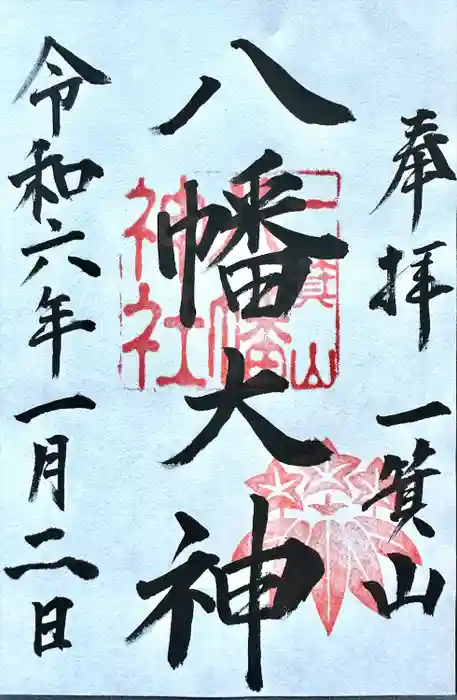 奉拝 一箕山
八幡大神
一箕山
八幡
神社
令和六年一月二日